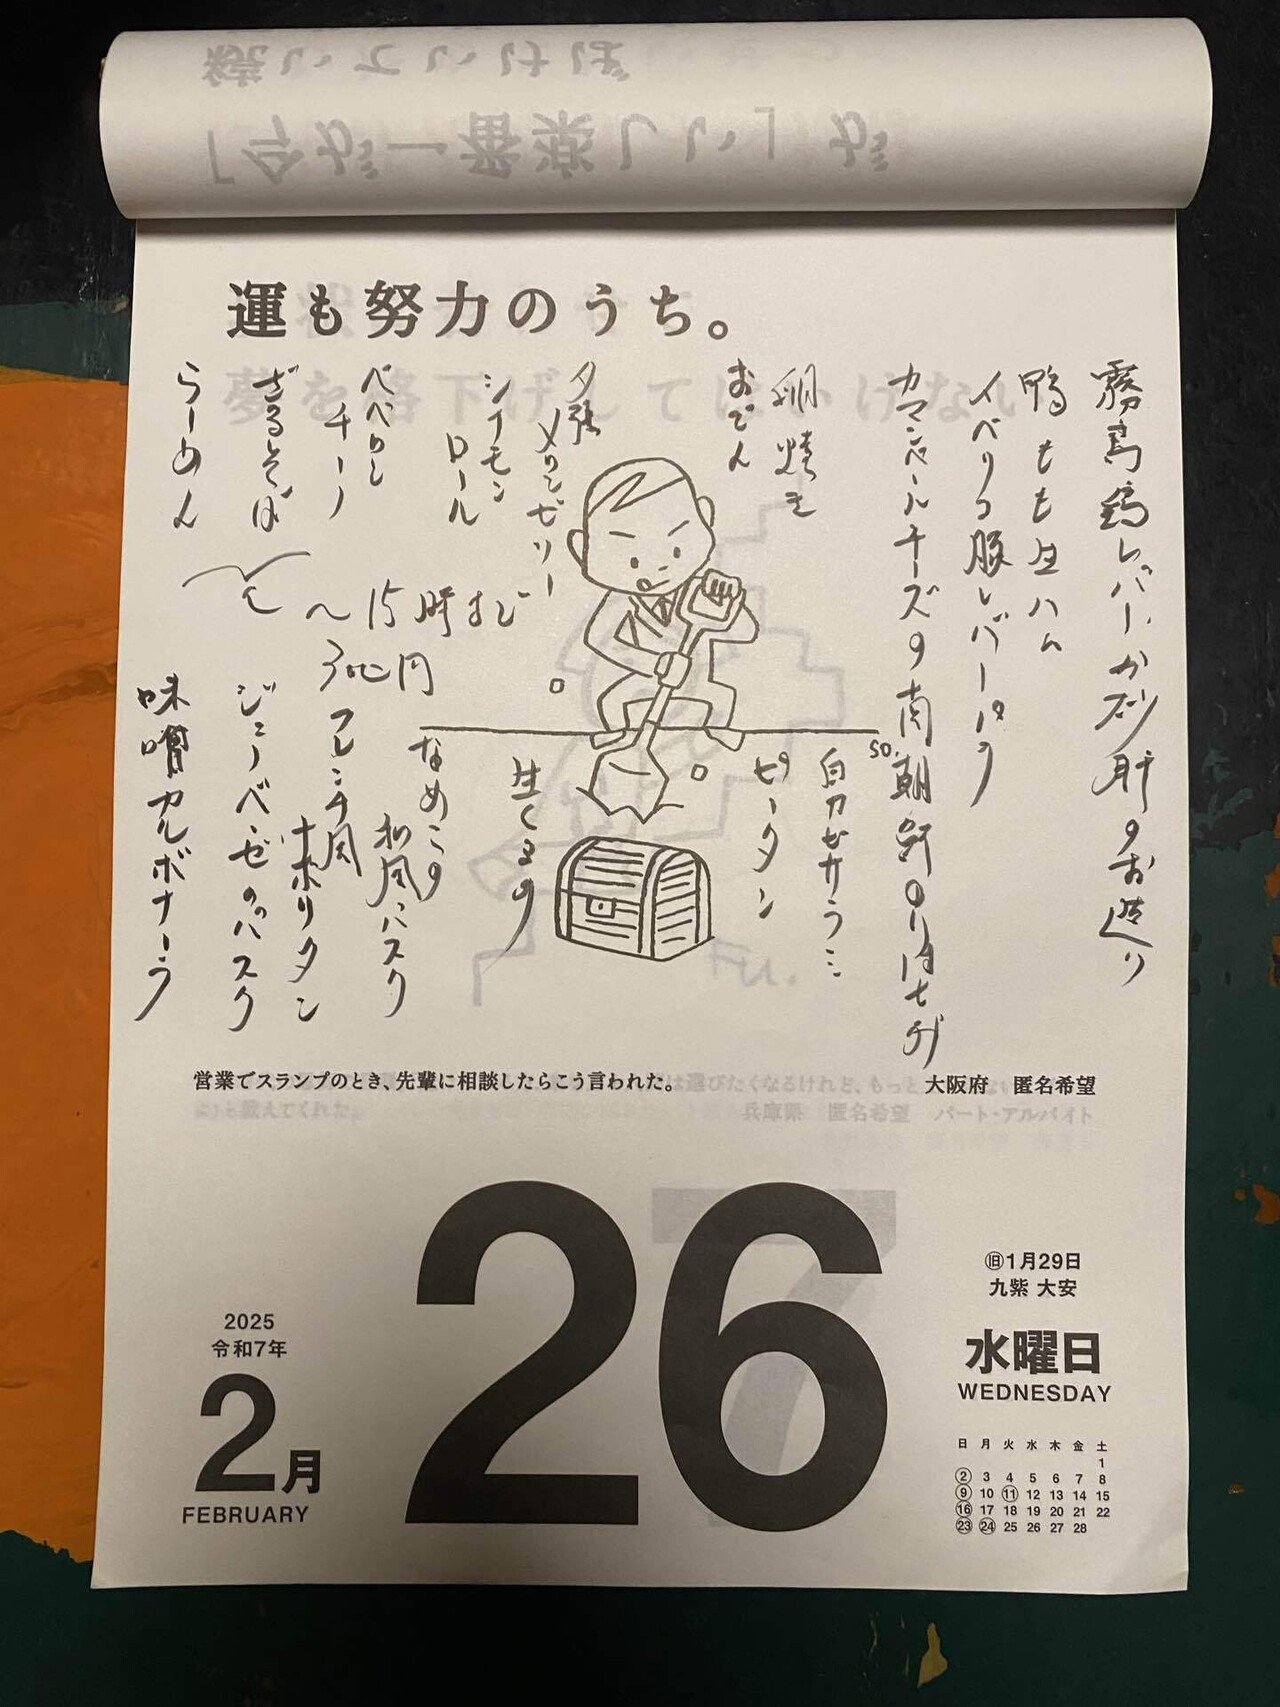 運も努力のうち。
霧島鶏レバーか砂肝のお造り
鴨もも生ハム
イベリコ豚レバーパテ
カマンベールチーズの南朝鮮のりはさみ
卵焼き
おでん
夕張メロンゼリー
シナモンロール
ペペロンチーノ
ざるそば
らーめん
〜15時まで
300円
白カビサラミ
ピータン
生くるみ
なめこの和風パスタ
フレンチ風ナポリタン
ジェノベーゼのパスタ
味噌カルボナーラ
営業でスランプのとき、先輩に相談したらこう言われた。
大阪府 匿名希望
2025
令和7年
2月
FEBRUARY
26
旧1月29日
九紫 大安
水曜日
WEDNESDAY
日 月 火 水 木 金 土
1
2 3 4 5 6 7 8
9 10 11 12 13 14 15
16 17 18 19 20 21 22
23 24 25 26 27 28